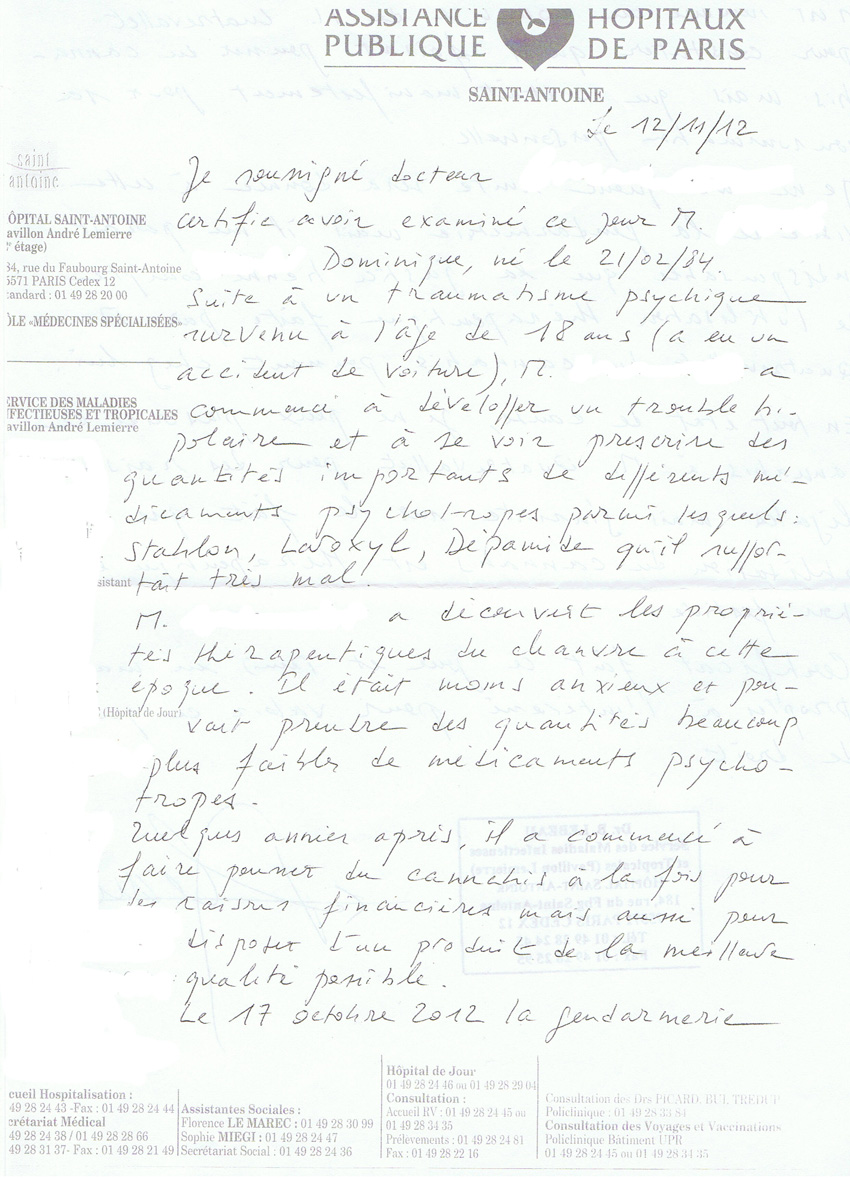 ASSISTANCE PUBLIQUE HÔPITAUX DE PARIS
SAINT-ANTOINE
Le 12/11/12
saint antoine
Je soussigné docteur
certifie avoir examiné ce jour M.
Dominique, né le 21/02/84
Suite à un traumatisme psychique
survenu à l'âge de 18 ans (a eu un
accident de voiture), M. a
commencé à développer un trouble bi-
polaire et à se voir prescrire des
quantités importants de différents mé-
dicaments psychotropes parmi lesquels :
Stablon, Laroxyl, Dépamide qu'il suppor-
tait très mal.
M. a découvert les proprié-
tés thérapeutiques du chanvre à cette
époque. Il était moins anxieux et pou-
vait prendre des quantités beaucoup
plus faibles de médicaments psycho-
tropes.
Quelques années après, il a commencé à
faire pousser du cannabis à la fois pour
des raisons financières mais aussi pour
disposer d'un produit de la meilleure
qualité possible.
Le 17 octobre 2012 la gendarmerie
ÔPITAL SAINT-ANTOINE
avillon André Lemierre
étage)
84, rue du Faubourg Saint-Antoine
5571 PARIS Cedex 12
tandard : 01 49 28 20 00
ÔLE «MÉDECINES SPÉCIALISÉES»
ERVICE DES MALADIES
NFECTIEUSES ET TROPICALES
avillon André Lemierre
sistant
(Hôpital de Jour)
cueil Hospitalisation :
49 28 24 43 -Fax : 01 49 28 24 44
crétariat Médical
49 28 24 38 / 01 49 28 28 66
49 28 31 37- Fax : 01 49 28 21 49
Assistantes Sociales :
Florence LE MAREC : 01 49 28 30 99
Sophie MIEGI : 01 49 28 24 47
Secrétariat Social : 01 49 28 24 36
Hôpital de Jour
01 49 28 24 46 ou 01 49 28 29 04
Consultation :
Accueil RV : 01 49 28 24 45 ou
01 49 28 34 35
Prélèvements : 01 49 28 24 81
Fax : 01 49 28 22 16
Consultation des Drs PICARD, BUI, TREDUP
Policlinique : 01 49 28 33 84
Consultation des Voyages et Vaccinations
Policlinique Bâtiment UPR
01 49 28 24 45 ou 01 49 28 34 35